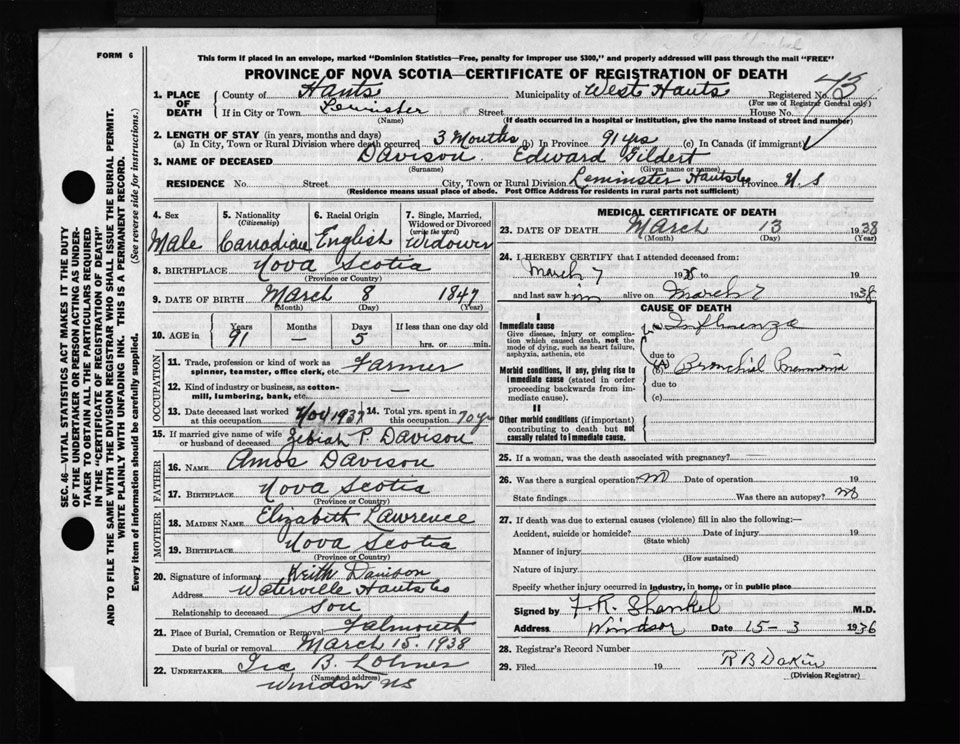 FORM 6
This form if placed in an envelope, marked "Dominion Statistics—Free, penalty for improper use $300," and properly addressed will pass through the mail "FREE"
PROVINCE OF NOVA SCOTIA—CERTIFICATE OF REGISTRATION OF DEATH
SEC. 46—VITAL STATISTICS ACT MAKES IT THE DUTY
OF THE UNDERTAKER OR PERSON ACTING AS UNDER-
TAKER TO OBTAIN ALL THE PARTICULARS REQUIRED
IN THE "CERTIFICATE OF REGISTRATION OF DEATH"
AND TO FILE THE SAME WITH THE DIVISION REGISTRAR WHO SHALL ISSUE THE BURIAL PERMIT.
WRITE PLAINLY WITH UNFADING INK. THIS IS A PERMANENT RECORD.
Every item of information should be carefully supplied. (See reverse side for instructions.)
1. PLACE OF DEATH
County of Hants Municipality of West Hants Registered No.
(For use of Registrar General only)
If in City or Town Leminster Street House No.
(Name) (If death occurred in a hospital or institution, give the name instead of street and number)
2. LENGTH OF STAY (in years, months and days)
(a) In City, Town or Rural Division where death occurred 3 Months (b) In Province 91 yrs (c) In Canada (if immigrant)
3. NAME OF DECEASED Davison Edward Gilbert
(Surname) (Given name or names)
RESIDENCE No. Street City, Town or Rural Division Leminster Hants Co Province N S
(Residence means usual place of abode. Post Office Address for residents in rural parts not sufficient)
4. Sex Male
5. Nationality (Citizenship) Canadian
6. Racial Origin English
7. Single, Married, Widowed or Divorced (write the word) Widower
8. BIRTHPLACE Nova Scotia
(Province or Country)
9. DATE OF BIRTH March 8 1847
(Month) (Day) (Year)
10. AGE in Years 91 Months — Days 5 If less than one day old hrs. or min.
OCCUPATION
11. Trade, profession or kind of work as spinner, teamster, office clerk, etc. Farmer
12. Kind of industry or business, as cotton-mill, lumbering, bank, etc. —
13. Date deceased last worked at this occupation Nov 1937 14. Total yrs. spent in this occupation 70 yrs
15. If married give name of wife or husband of deceased Zebiah P. Davison
FATHER
16. NAME Amos Davison
17. BIRTHPLACE Nova Scotia
(Province or Country)
MOTHER
18. MAIDEN NAME Elizabeth Lawrence
19. BIRTHPLACE Nova Scotia
(Province or Country)
20. Signature of informant Keith Davison
Address Waterville Hants Co
Relationship to deceased Son
21. Place of Burial, Cremation or Removal Falmouth
Date of burial or removal March 15. 1938
22. UNDERTAKER Ira B. Lohnes
(Name and address)
Windsor NS
MEDICAL CERTIFICATE OF DEATH
23. DATE OF DEATH March 13 1938
(Month) (Day) (Year)
24. I HEREBY CERTIFY that I attended deceased from:
March 7 1938 to 19
and last saw him alive on March 7 1938
CAUSE OF DEATH
I
Immediate cause
Give disease, injury or complication which caused death, not the mode of dying, such as heart failure, asphyxia, asthenia, etc
(a) Influenza
due to
Morbid conditions, if any, giving rise to immediate cause (stated in order proceeding backwards from immediate cause).
(b) Bronchial Pneumonia
due to
(c)
II
Other morbid conditions (if important) contributing to death but not causally related to immediate cause.
25. If a woman, was the death associated with pregnancy? —
26. Was there a surgical operation? no Date of operation 19
State findings Was there an autopsy? no
27. If death due to external causes (violence) fill in also the following:—
Accident, suicide or homicide? Date of injury 19
(State which)
Manner of injury
(How sustained)
Nature of injury
Specify whether injury occurred in industry, in home, or in public place
Signed by F. R. Shankel M.D.
Address Windsor Date 15-3 1936
28. Registrar's Record Number
29. Filed 19 R B Dakin
(Division Registrar)